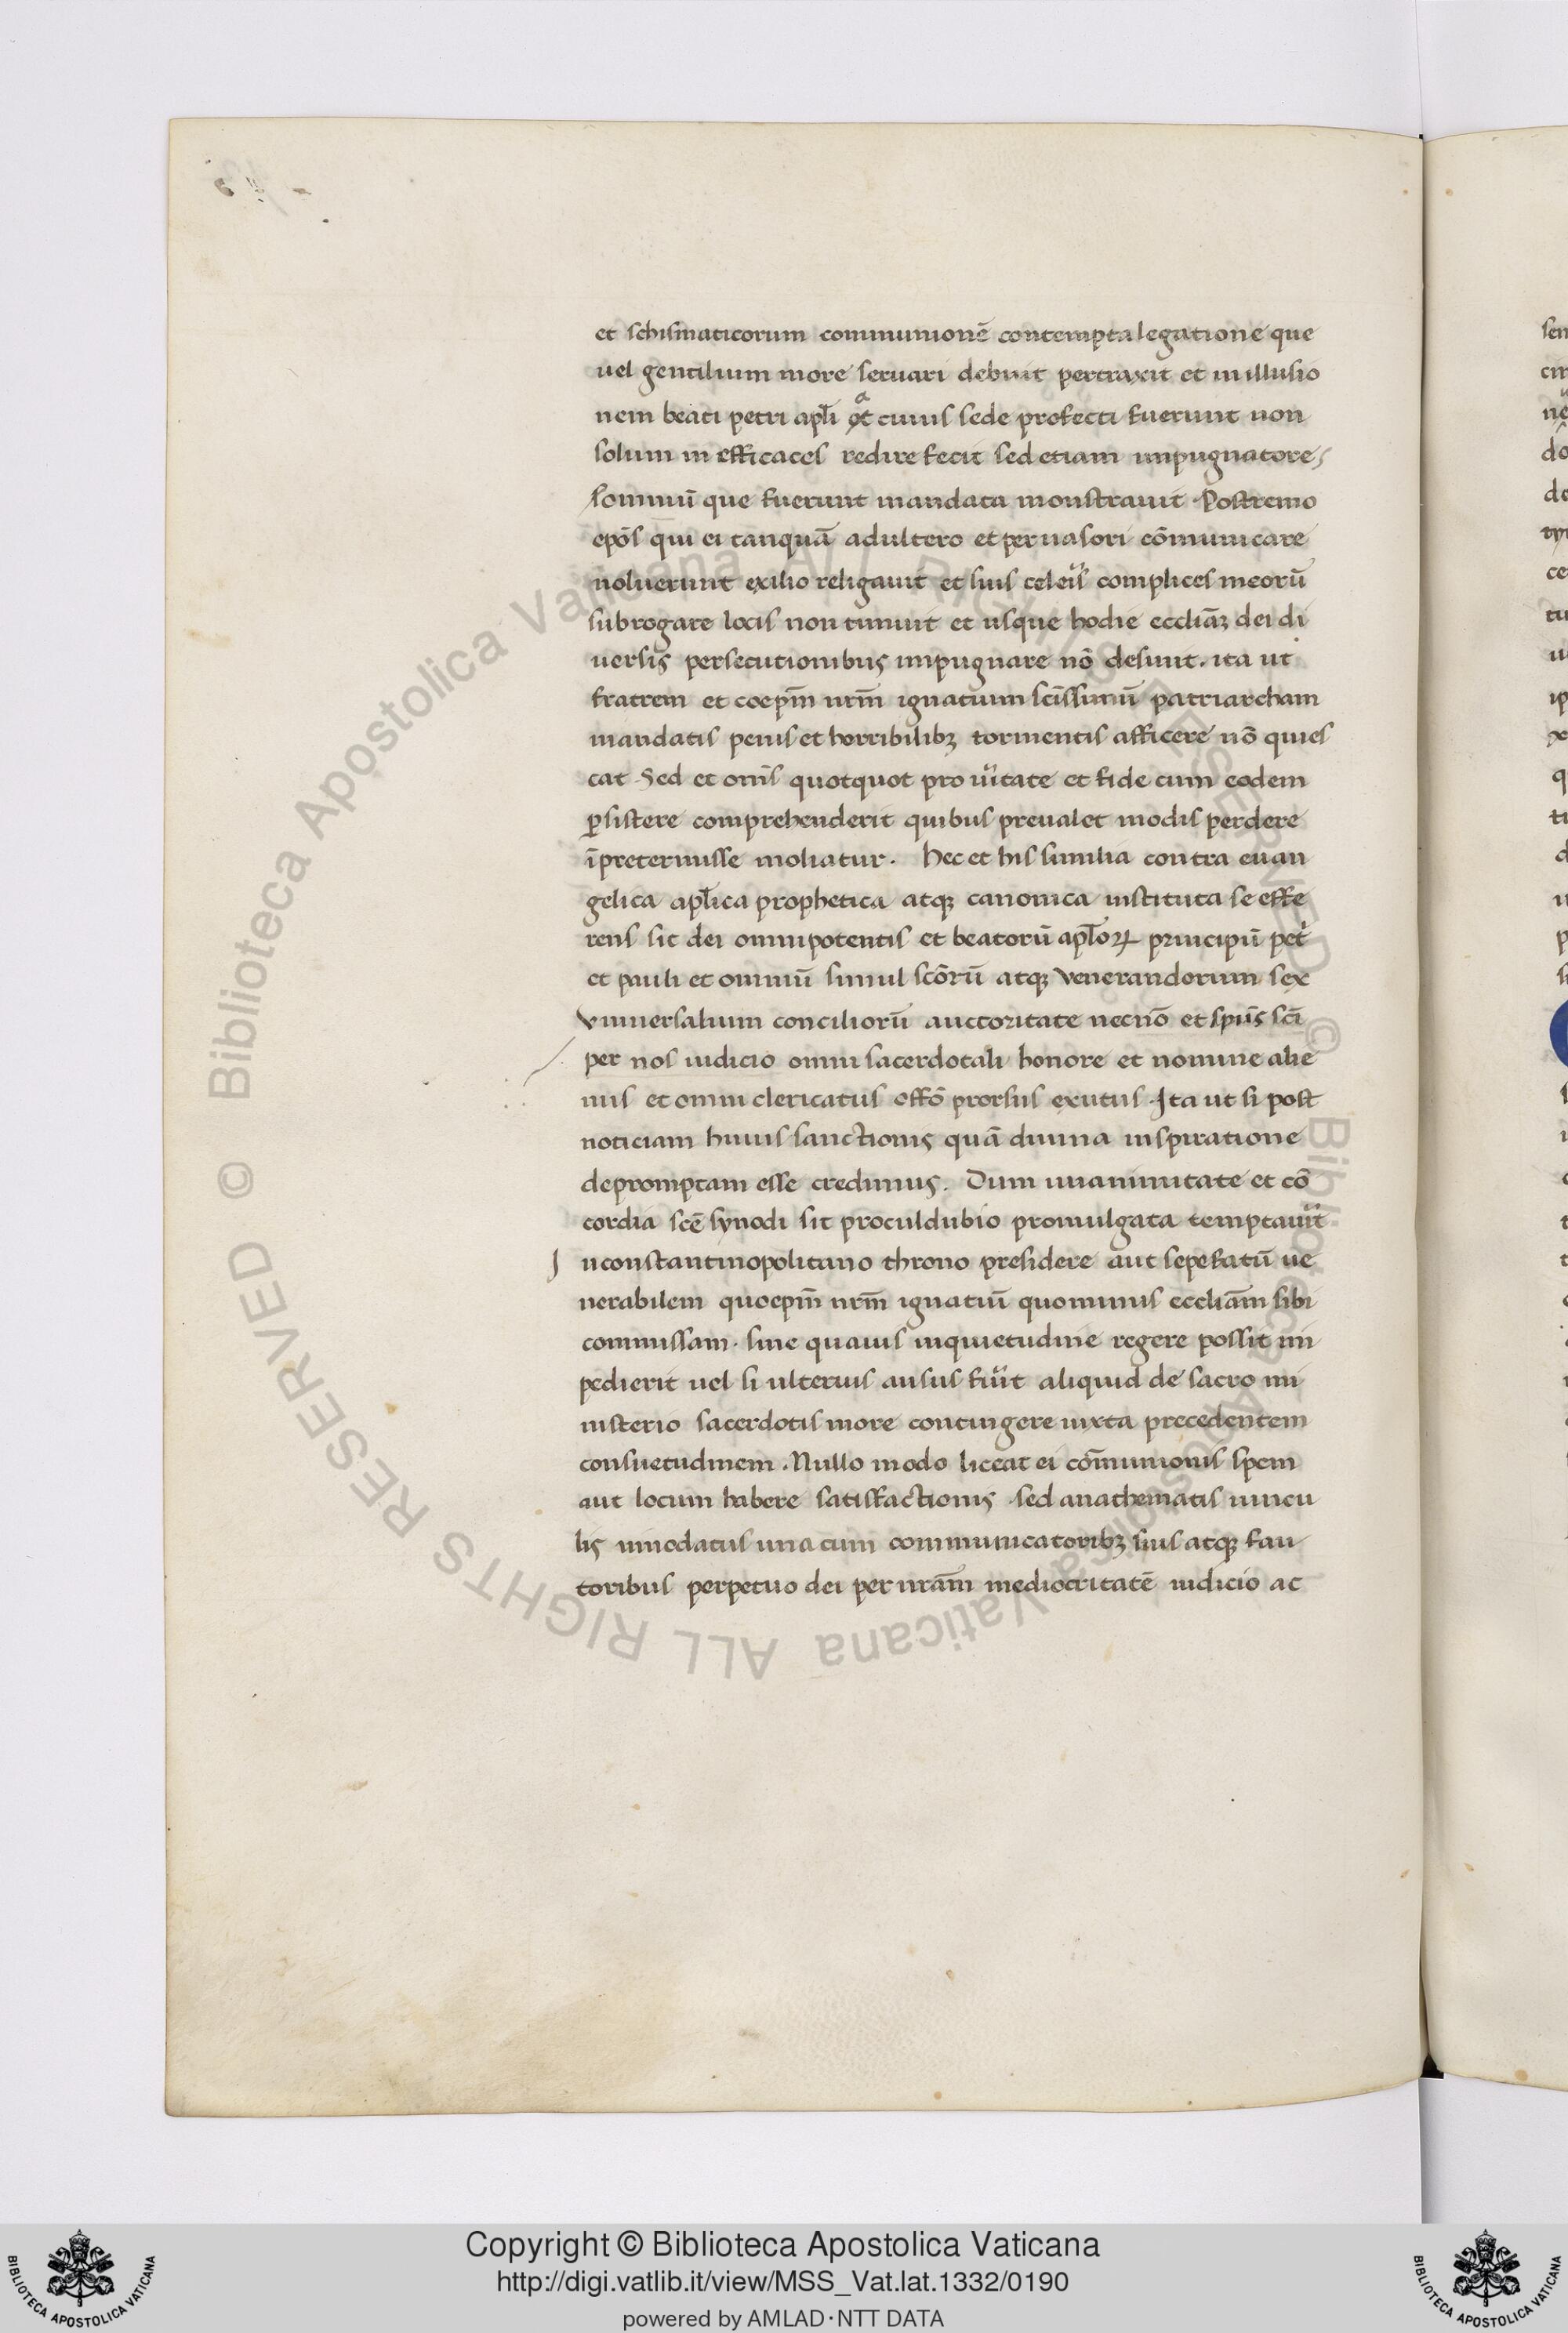 et schismaticorum communionē contempta legatione que
uel gentilium more seruari debuit pertraxit et in illusio
nem beati petri apl̄i et a cuius sede profecti fuerunt non
solum in efficaces redire fecit sed etiam impugnatore/
somniū que fuerunt mandata monstrauit. Postremo
ep̄os qui ei tanquā adultero et peruasori cōmunicare
noluerunt exilio religauit et suis celeris complices meorū
subrogare locis non timuit et usque hodie eccliāȝ dei di
uersis persecutionibus impugnare nō desunt. ita ut
fratrem et coepm̄ nrm̄ ignatium scīssimū patriarcham
mandatis penis et horribilibȝ tormentis afficere nō quies
cat. Sed et om̄s quotquot pro ūitate et fide cum eodem
ꝑsistere comprehenderit quibus preualet modis perdere
īpretermisse moliatur. Hec et his similia contra euan
gelica apl̄ica prophetica atqȝ canonica instituta se effe
rens sit dei omnipotentis et beatorū apl̄oꝝ principū pet̄
et pauli et omniū simul scōrū atqȝ venerandorum sex
vniuersalium conciliorū auctoritate necnō et spūs scī
per nos iudicio omni sacerdotali honore et nomine alie
nus et omni clericatus offō prorsus exutus. Ita ut si post
noticiam huius sanctionis quā diuina inspiratione
depromptam esse credimus. Dum unanimitate et cō
cordia scē synodi sit proculdubio promulgata temptauit̄
J nconstantinopolitano throno presidere aut sepefatū ue
nerabilem quoepm̄ nrm̄ ignatiū quominus eccliām sibi
commissam. sine quauis inquietudine regere possit im
pedierit uel si ulterius ausus fuit̄ aliquid de sacro mi
nisterio sacerdotis more contingere iuxta precedentem
consuetudinem. Nullo modo liceat ei cōmunionis spem
aut locum habere satisfactionis. sed anathematis uincu
lis innodatus una cum communicatoribȝ suis atqȝ fau
toribus perpetuo dei per nrām mediocritatē iudicio ac
Copyright © Biblioteca Apostolica Vaticana
http://digi.vatlib.it/view/MSS_Vat.lat.1332/0190
powered by AMLAD·NTT DATA